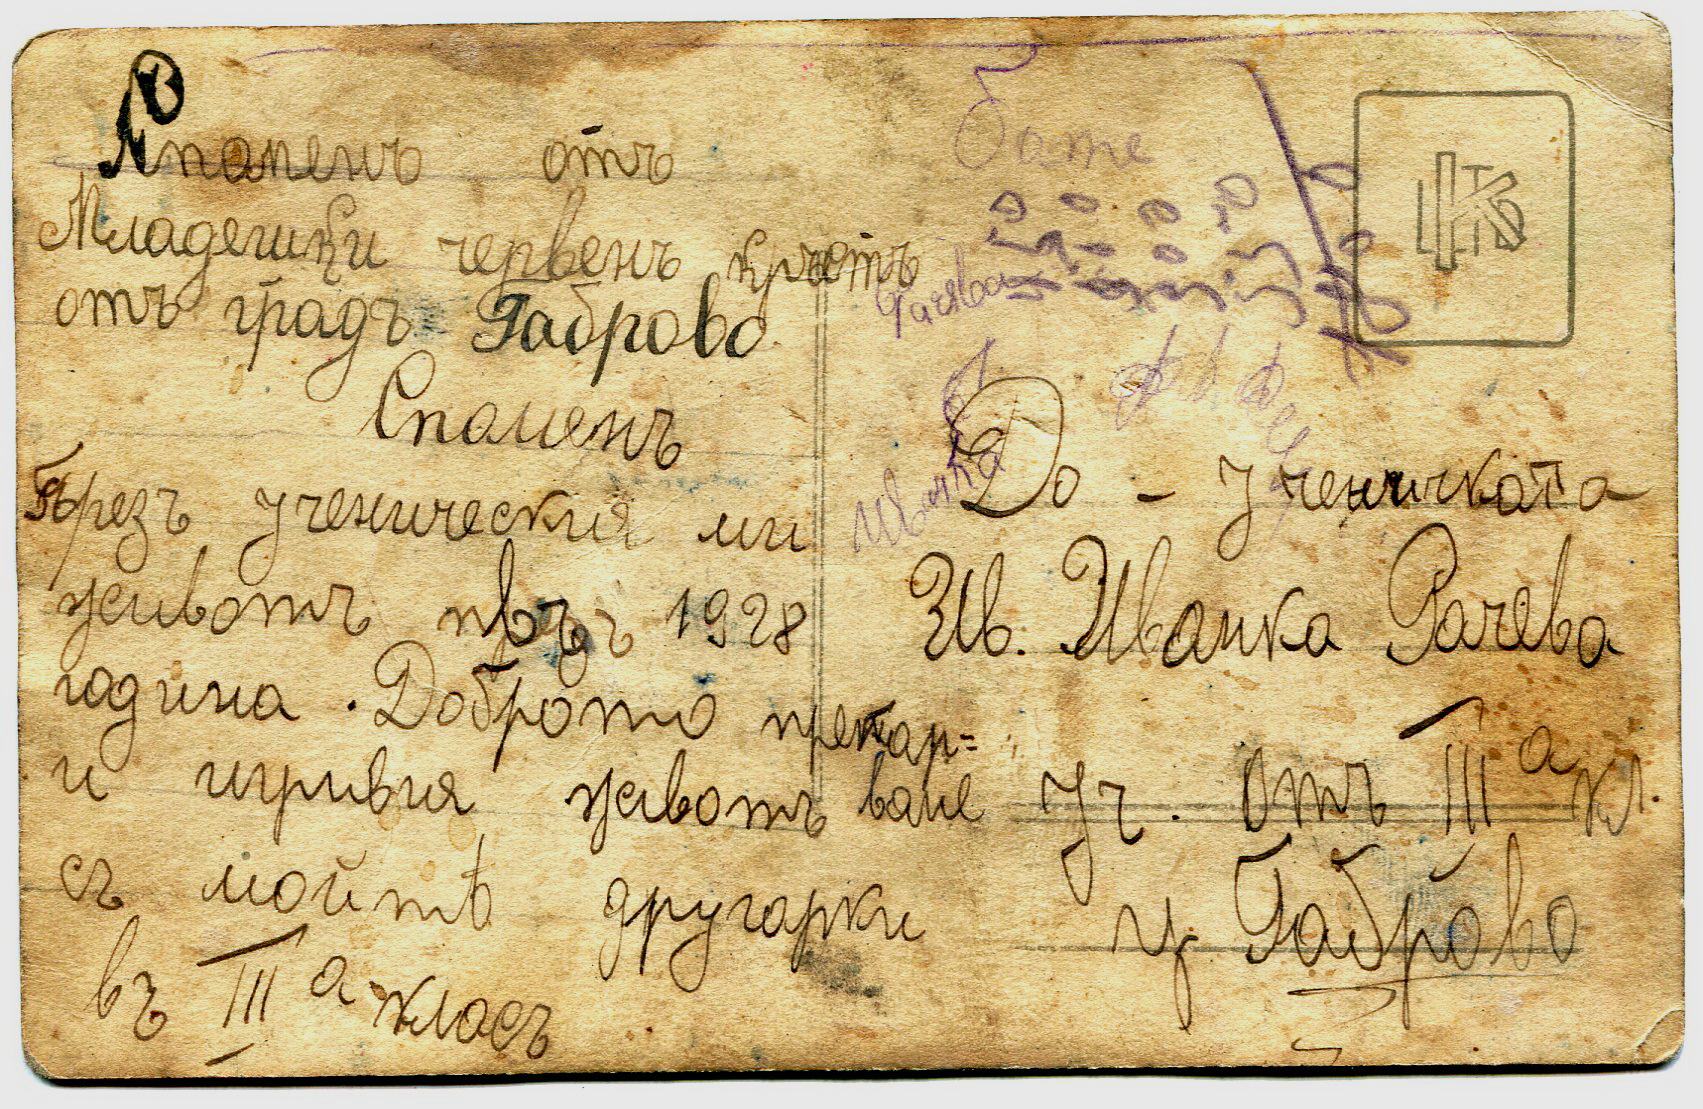 Спаменъ отъ
Младешки червенъ кръстъ
отъ градъ Габрово
Спаменъ
Презъ ученическия ми
животъ презъ 1928
година. Доброто прекар=
ване
и игривия животъ
съ мойтѣ другарки
въ III а класъ
Бате
Иванка
До - ученичката
Ив. Иванка Рачева
уч. отъ III а кл.
Габрово